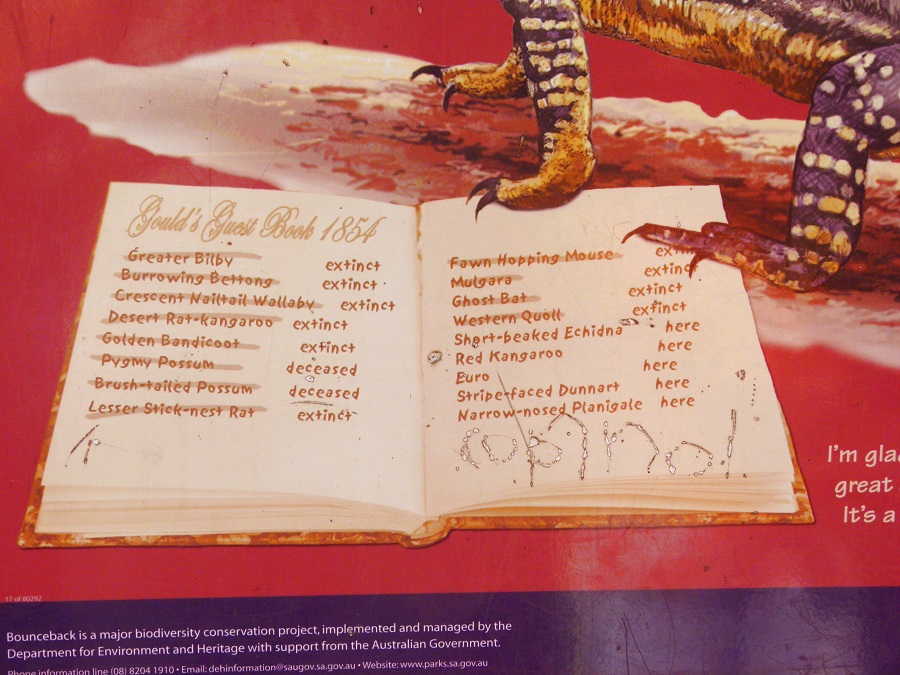 Gould's Guest Book 1854
Greater Bilby extinct
Burrowing Bettong extinct
Crescent Nailtail Wallaby extinct
Desert Rat-kangaroo extinct
Golden Bandicoot extinct
Pygmy Possum deceased
Brush-tailed Possum deceased
Lesser Stick-nest Rat extinct
Fawn Hopping Mouse
Mulgara extinct
Ghost Bat extinct
Western Quoll extinct
Short-beaked Echidna here
Red Kangaroo here
Euro here
Stripe-faced Dunnart here
Narrow-nosed Planigale here
I'm glad
great
It's a
17 of 80292
Bounceback is a major biodiversity conservation project, implemented and managed by the
Department for Environment and Heritage with support from the Australian Government.
Phone information line (08) 8204 1910 • Email: dehinformation@saugov.sa.gov.au • Website: www.parks.sa.gov.au